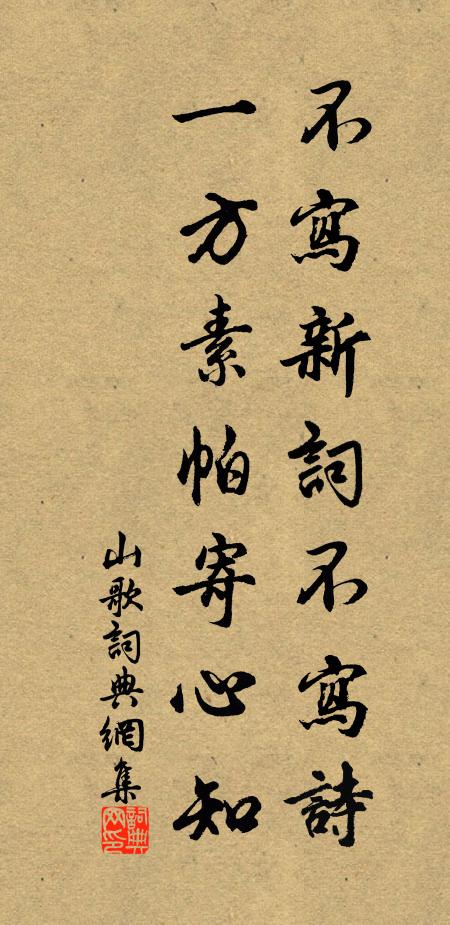 不寫新詞不寫詩
一方素帕寄心知
山歌詞典網集
詞典網印